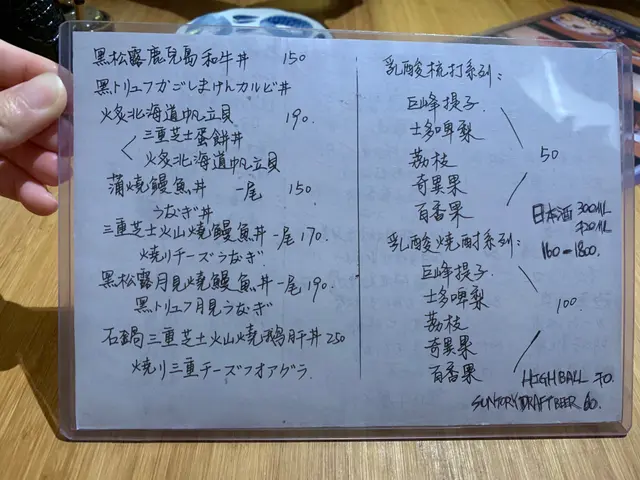 黑松露鹿兒島和牛丼 150
黒トリュフかごしまけんカルビ丼
火炙北海道帆立貝 190.
三重芝士蛋餅丼
火炙北海道帆立貝
蒲燒鰻魚丼 一尾 150
うなぎ丼
三重芝士火山燒鰻魚丼一尾 170.
焼りチーズうなぎ
黑松露月見燒鰻魚丼一尾 190.
黒トリュフ月見うなぎ
石鍋三重芝士火山燒鵝肝丼 250
焼り三重チーズフオアグラ
乳酸梳打系列:
巨峰提子
士多啤梨
荔枝
奇異果
百香果
50
乳酸燒酎系列:
巨峰提子
士多啤梨
荔枝
奇異果
百香果
100.
日本酒 300ML
720ML
160-1800.
HIGHBALL 70.
SUNTORY DRAFT BEER 60.